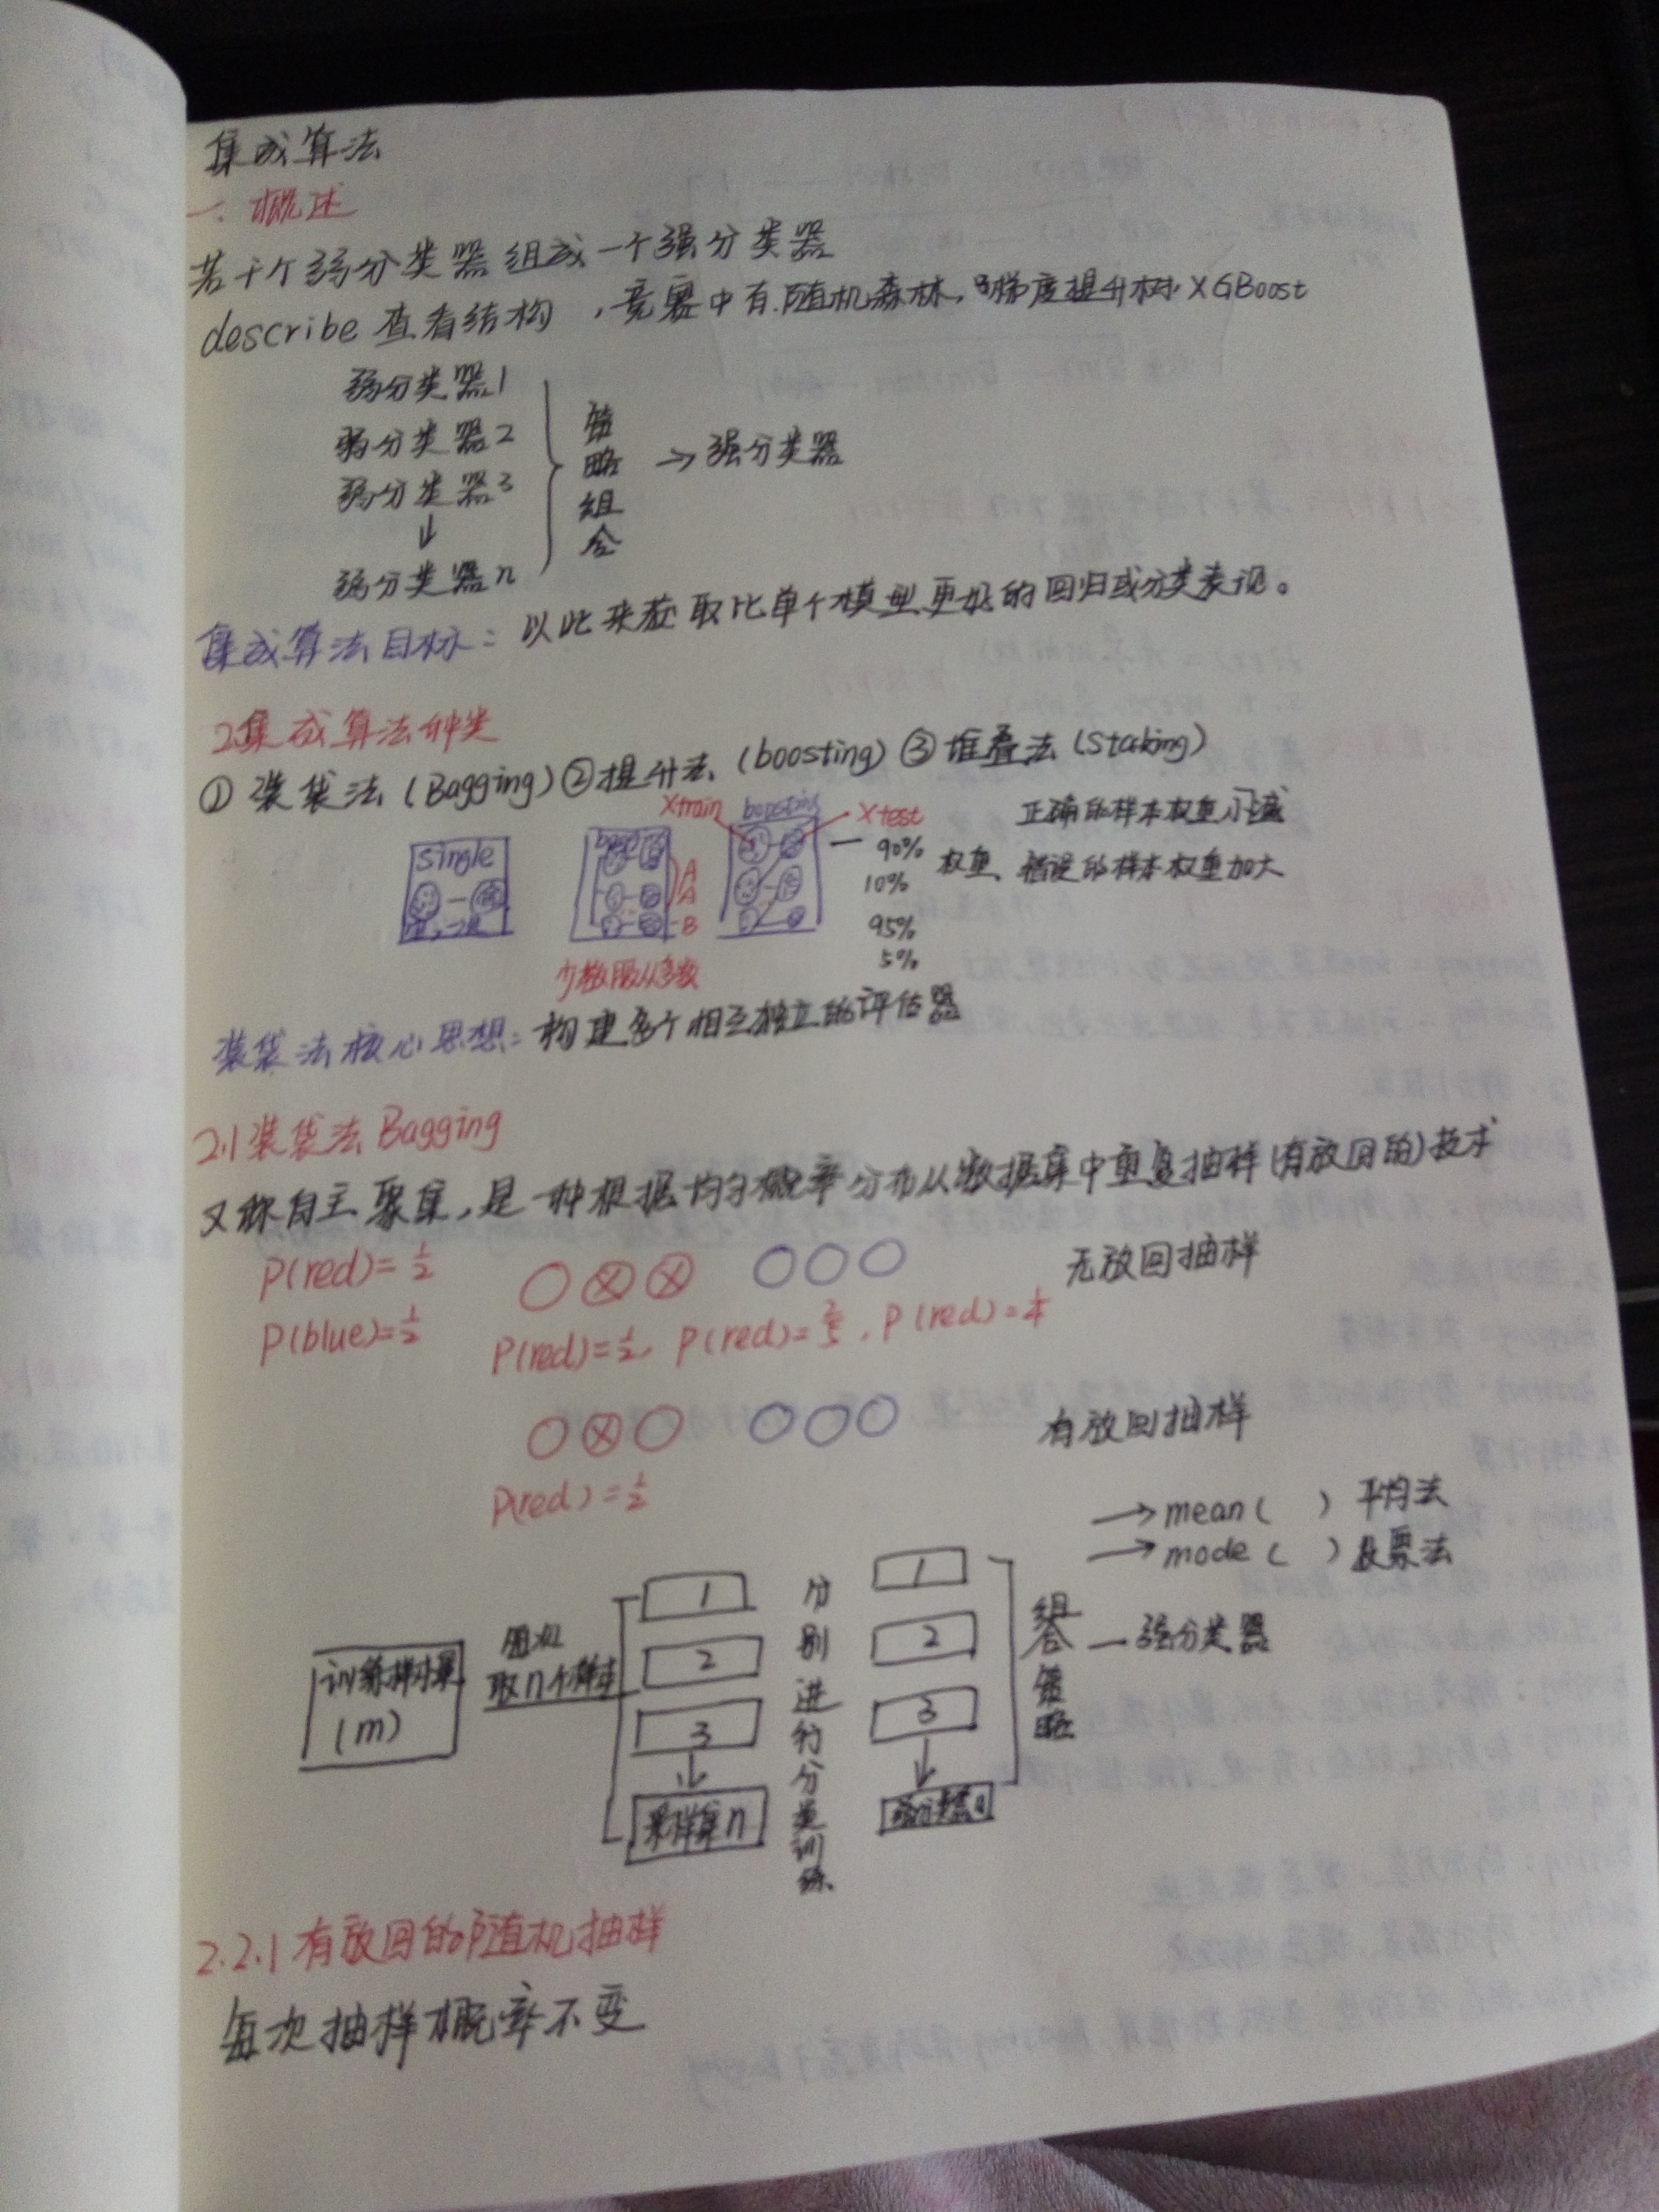 集成算法
一. 概述
若干个弱分类器组成一个强分类器
describe 查看结构，竞赛中有随机森林，梯度提升树 XGBoost
弱分类器1
弱分类器2
弱分类器3
↓
弱分类器n
策略组合
→ 强分类器
集成算法目标：以此来获取比单个模型更好的回归或分类表现。
2.集成算法种类
① 装袋法 (Bagging) ② 提升法 (boosting) ③ 堆叠法 (Staking)
Xtrain boosting Xtest
single
A
A
B
少数服从多数
90%
10%
95%
5%
正确的样本权重小减
权重、错误的样本权重加大
装袋法核心思想：构建多个相互独立的评估器
2.1 装袋法 Bagging
又称自主聚集，是一种根据均匀概率分布从数据集中重复抽样(有放回的)技术
P(red)=1/2
P(blue)=1/2
无放回抽样
P(red)=1/2, P(red)=2/5, P(red)=1/4
有放回抽样
P(red)=1/2
→ mean( ) 平均法
→ mode( ) 投票法
训练样本集
(m)
取n个样本
1
2
3
采样集n
分别进行分类训练
1
2
3
弱分类器n
组合策略
— 强分类器
2.2.1 有放回的随机抽样
每次抽样概率不变